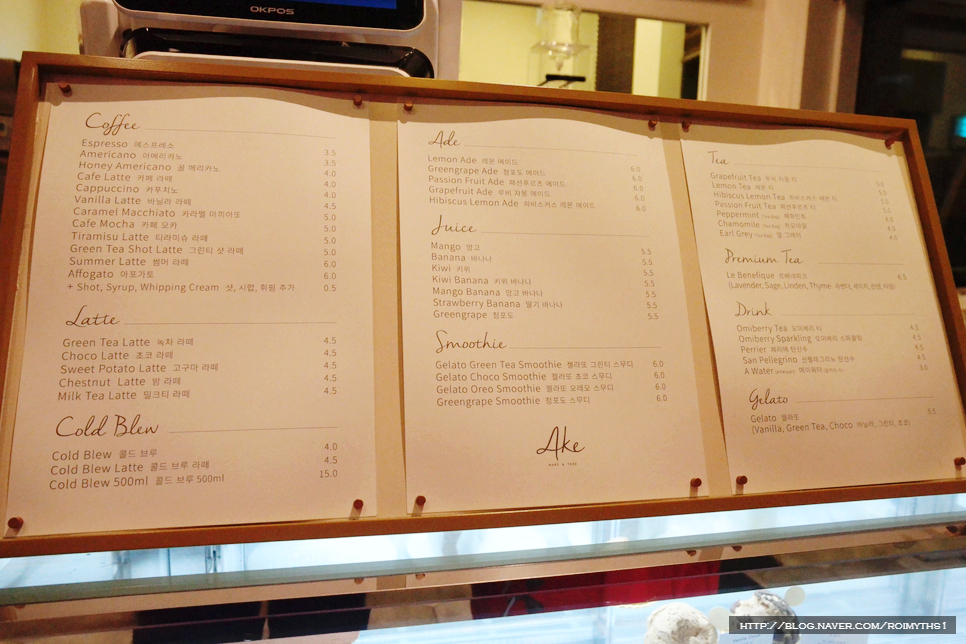 OKPOS
Coffee
Espresso 에스프레소 3.5
Americano 아메리카노 3.5
Honey Americano 꿀 메리카노 4.0
Cafe Latte 카페 라떼 4.0
Cappuccino 카푸치노 4.0
Vanilla Latte 바닐라 라떼 4.5
Caramel Macchiato 카라멜 마끼아또 5.0
Cafe Mocha 카페 모카 5.0
Tiramisu Latte 티라미슈 라떼 5.0
Green Tea Shot Latte 그린티 샷 라떼 5.0
Summer Latte 썸머 라떼 6.0
Affogato 아포가토 6.0
+ Shot, Syrup, Whipping Cream 샷, 시럽, 휘핑 추가 0.5
Latte
Green Tea Latte 녹차 라떼 4.5
Choco Latte 초코 라떼 4.5
Sweet Potato Latte 고구마 라떼 4.5
Chestnut Latte 밤 라떼 4.5
Milk Tea Latte 밀크티 라떼 4.5
Cold Blew
Cold Blew 콜드 브루 4.0
Cold Blew Latte 콜드 브루 라떼 4.5
Cold Blew 500ml 콜드 브루 500ml 15.0
Ade
Lemon Ade 레몬 에이드 6.0
Greengrape Ade 청포도 에이드 6.0
Passion Fruit Ade 패션푸르츠 에이드 6.0
Grapefruit Ade 루비 자몽 에이드 6.0
Hibiscus Lemon Ade 히비스커스 레몬 에이드 6.0
Juice
Mango 망고 5.5
Banana 바나나 5.5
Kiwi 키위 5.5
Kiwi Banana 키위 바나나 5.5
Mango Banana 망고 바나나 5.5
Strawberry Banana 딸기 바나나 5.5
Greengrape 청포도 5.5
Smoothie
Gelato Green Tea Smoothie 젤라또 그린티 스무디 6.0
Gelato Choco Smoothie 젤라또 초코 스무디 6.0
Gelato Oreo Smoothie 젤라또 오레오 스무디 6.0
Greengrape Smoothie 청포도 스무디 6.0
Ake
Tea
Grapefruit Tea 루비 자몽 티 5.0
Lemon Tea 레몬 티 5.0
Hibiscus Lemon Tea 히비스커스 레몬 티 5.0
Passion Fruit Tea 패션푸르츠 티
Peppermint (Tea Bag) 페퍼민트
Chamomile (Tea Bag) 캐모마일
Earl Grey (Tea Bag) 얼 그레이
Premium Tea
Le Benefique 르베네피크 6.5
(Lavender, Sage, Linden, Thyme 라벤더, 세이지, 린덴, 타임)
Drink
Omiberry Tea 오미베리 티 4.5
Omiberry Sparkling 오미베리 스파클링 4.5
Perrier 페리에 탄산수 4.5
San Pellegrino 산펠레그리노 탄산수 4.5
A Water 에이워터 3.0
Gelato
Gelato 젤라또 5.5
(Vanilla, Green Tea, Choco 바닐라, 그린티, 초코)
HTTP://BLOG.NAVER.COM/ROIMYTHS1